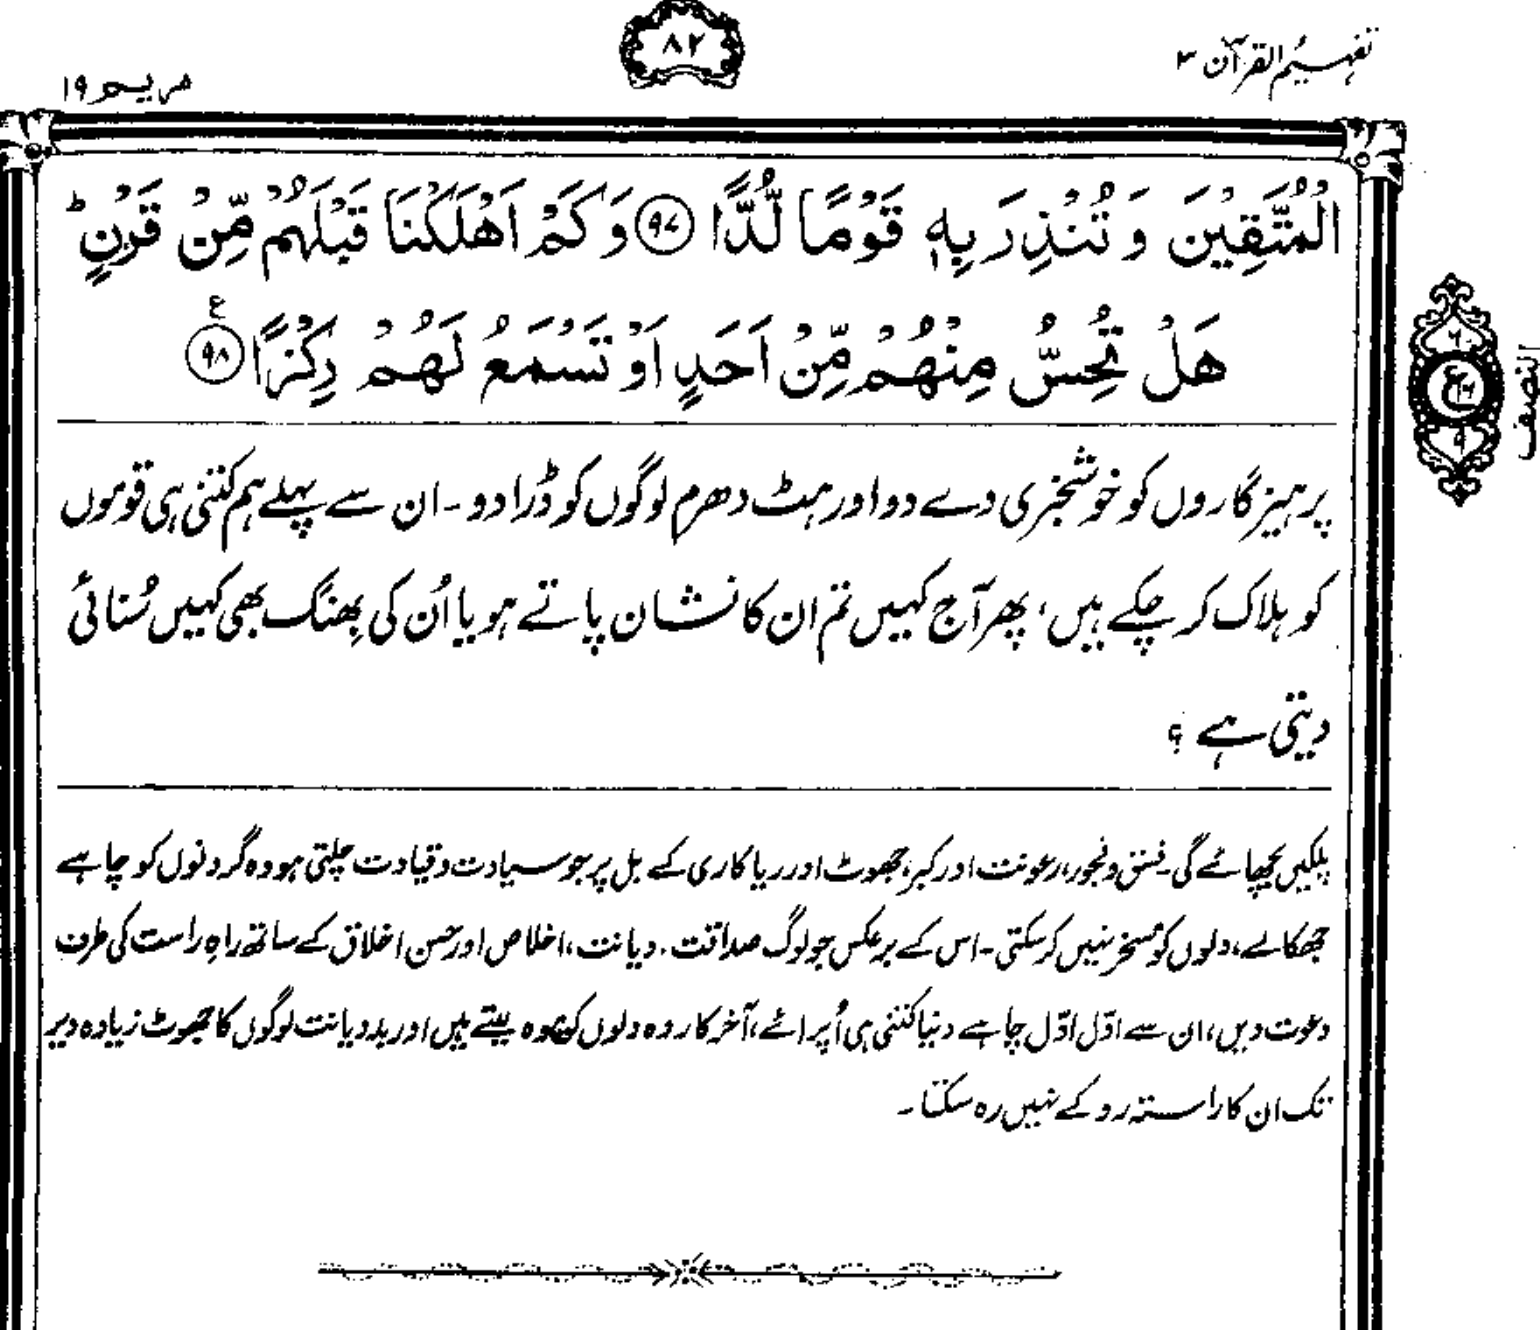 تفہیم القرآن ۳
۸۲
مریم ۱۹
الْمُتَّقِيْنَ وَ تُنْذِرَ بِهٖ قَوْمًا لُّدًّا ﴿۹۷﴾ وَ كَمْ اَهْلَكْنَا قَبْلَهُمْ مِّنْ قَرْنٍ ؕ
هَلْ تُحِسُّ مِنْهُمْ مِّنْ اَحَدٍ اَوْ تَسْمَعُ لَهُمْ رِكْزًا ﴿۹۸﴾ ع
النصف
ع
پرہیزگاروں کو خوشخبری دے دو اور ہٹ دھرم لوگوں کو ڈرا دو۔ ان سے پہلے ہم کتنی ہی قوموں
کو ہلاک کر چکے ہیں، پھر آج کہیں تم ان کا نشان پاتے ہو یا اُن کی بھِنک بھی کہیں سُنائی
دیتی ہے ؟
پلکیں بچھائے گی۔ فسق و فجور، رعونت اور کبر، جھوٹ اور ریاکاری کے بل پر جو سیادت و قیادت چلتی ہو وہ گردنوں کو چاہے
جھکالے، دلوں کو مسخر نہیں کرسکتی۔ اس کے برعکس جو لوگ صداقت، دیانت، اخلاص اور حسن اخلاق کے ساتھ راہِ راست کی طرف
دعوت دیں، ان سے اوّل اوّل چاہے دنیا کتنی ہی اُپرائے، آخر کار وہ دلوں کو موہ لیتے ہیں اور بددیانت لوگوں کا جھوٹ زیادہ دیر
تک ان کا راستہ روکے نہیں رہ سکتا۔